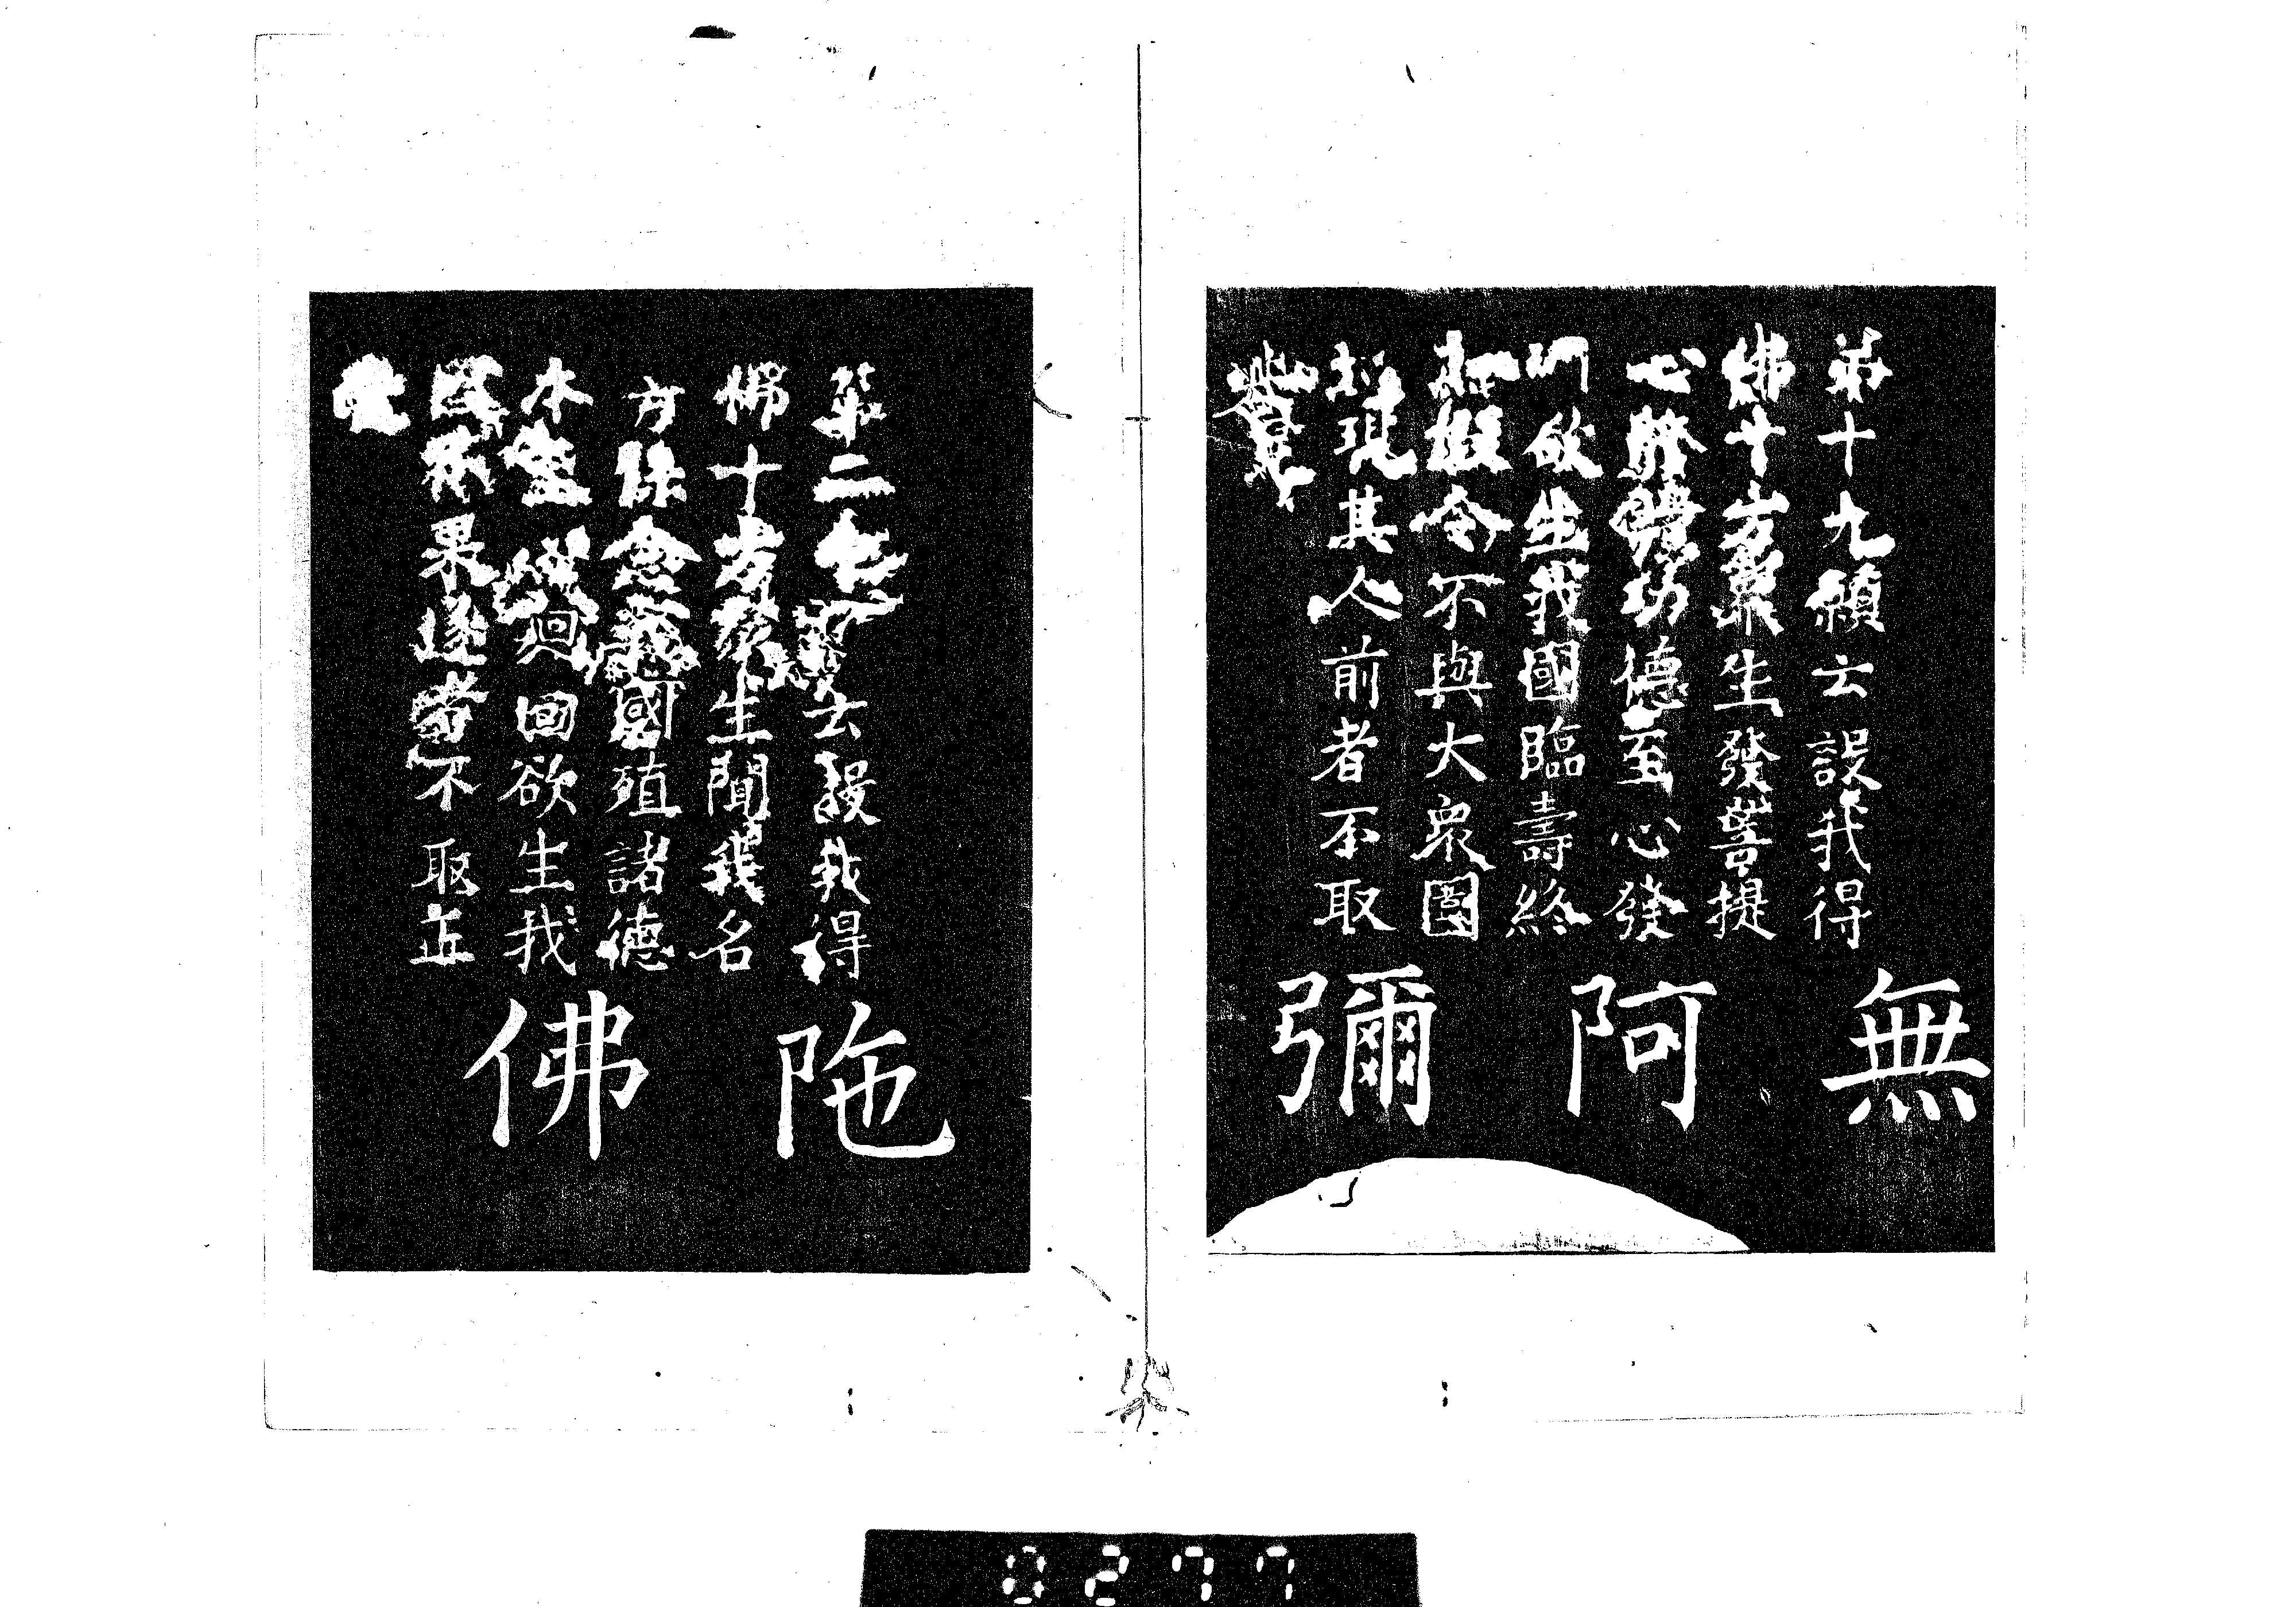 第十九願云設我得
佛十方衆生發菩提
心脩諸功德至心發
願欲生我國臨壽終
時假令不與大衆圍
繞現其人前者不取
無
阿
彌
第二十云設我得
佛十方衆生聞我名
方係念我國殖諸德
本至迴回欲生我
國不果遂者不取正
覺
陁
佛
0277